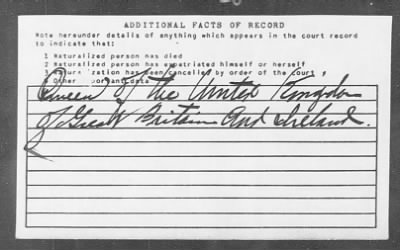 ADDITIONAL FACTS OF RECORD
Note hereunder details of anything which appears in the court record
to indicate that:
1 Naturalized person has died
2 Naturalized person has expatriated himself or herself
3 Naturalization has been cancelled by order of the court
4 Other important data
Queen of the United Kingdom
of Great Britain and Ireland.